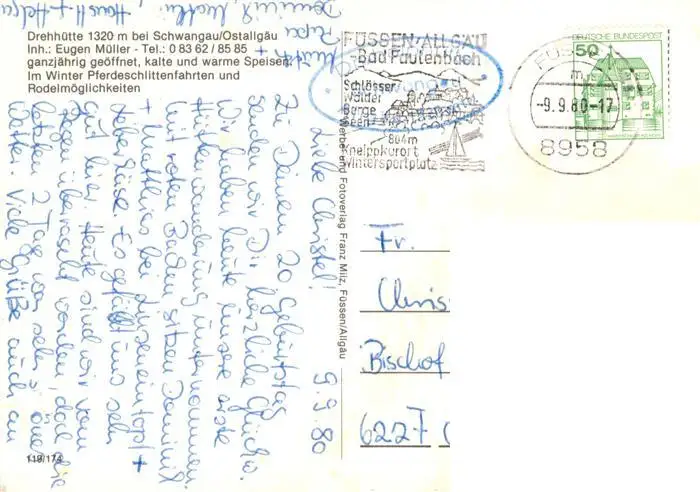 Drehhütte 1320 m bei Schwangau/Ostallgäu
Inh.: Eugen Müller - Tel.: 0 83 62 / 85 85
ganzjährig geöffnet, kalte und warme Speisen.
Im Winter Pferdeschlittenfahrten und
Rodelmöglichkeiten
FÜSSEN-ALLGÄU
Bad Faulenbach
Schlösser
Wälder
Berge
Seen
804m
Kneippkurort
Wintersportplatz
DEUTSCHE BUNDESPOST
50
FÜSSEN
m
-9.9.80-17
8958
9.9.80
Liebe Christel!
Zu Deinem 20 Geburtstag
senden wir Dir herzliche Glückw.
Wir haben heute unsere erste
Hüttenwanderung unternommen
Mit roten Backen sitzen Dominik
+ Matthias bei Linseneintopf +
Gut hier. Heute sind wir vom
Regen überrascht worden, doch die
letzten 2 Tage war sehr schöne
Wetter. Viele Grüße auch an
Dominik, Matthias
Papa
Horst + Helga
Fr.
Chris
Bischof
6227
Werbe- und Fotoverlag Franz Milz, Füssen/Allgäu
119/174